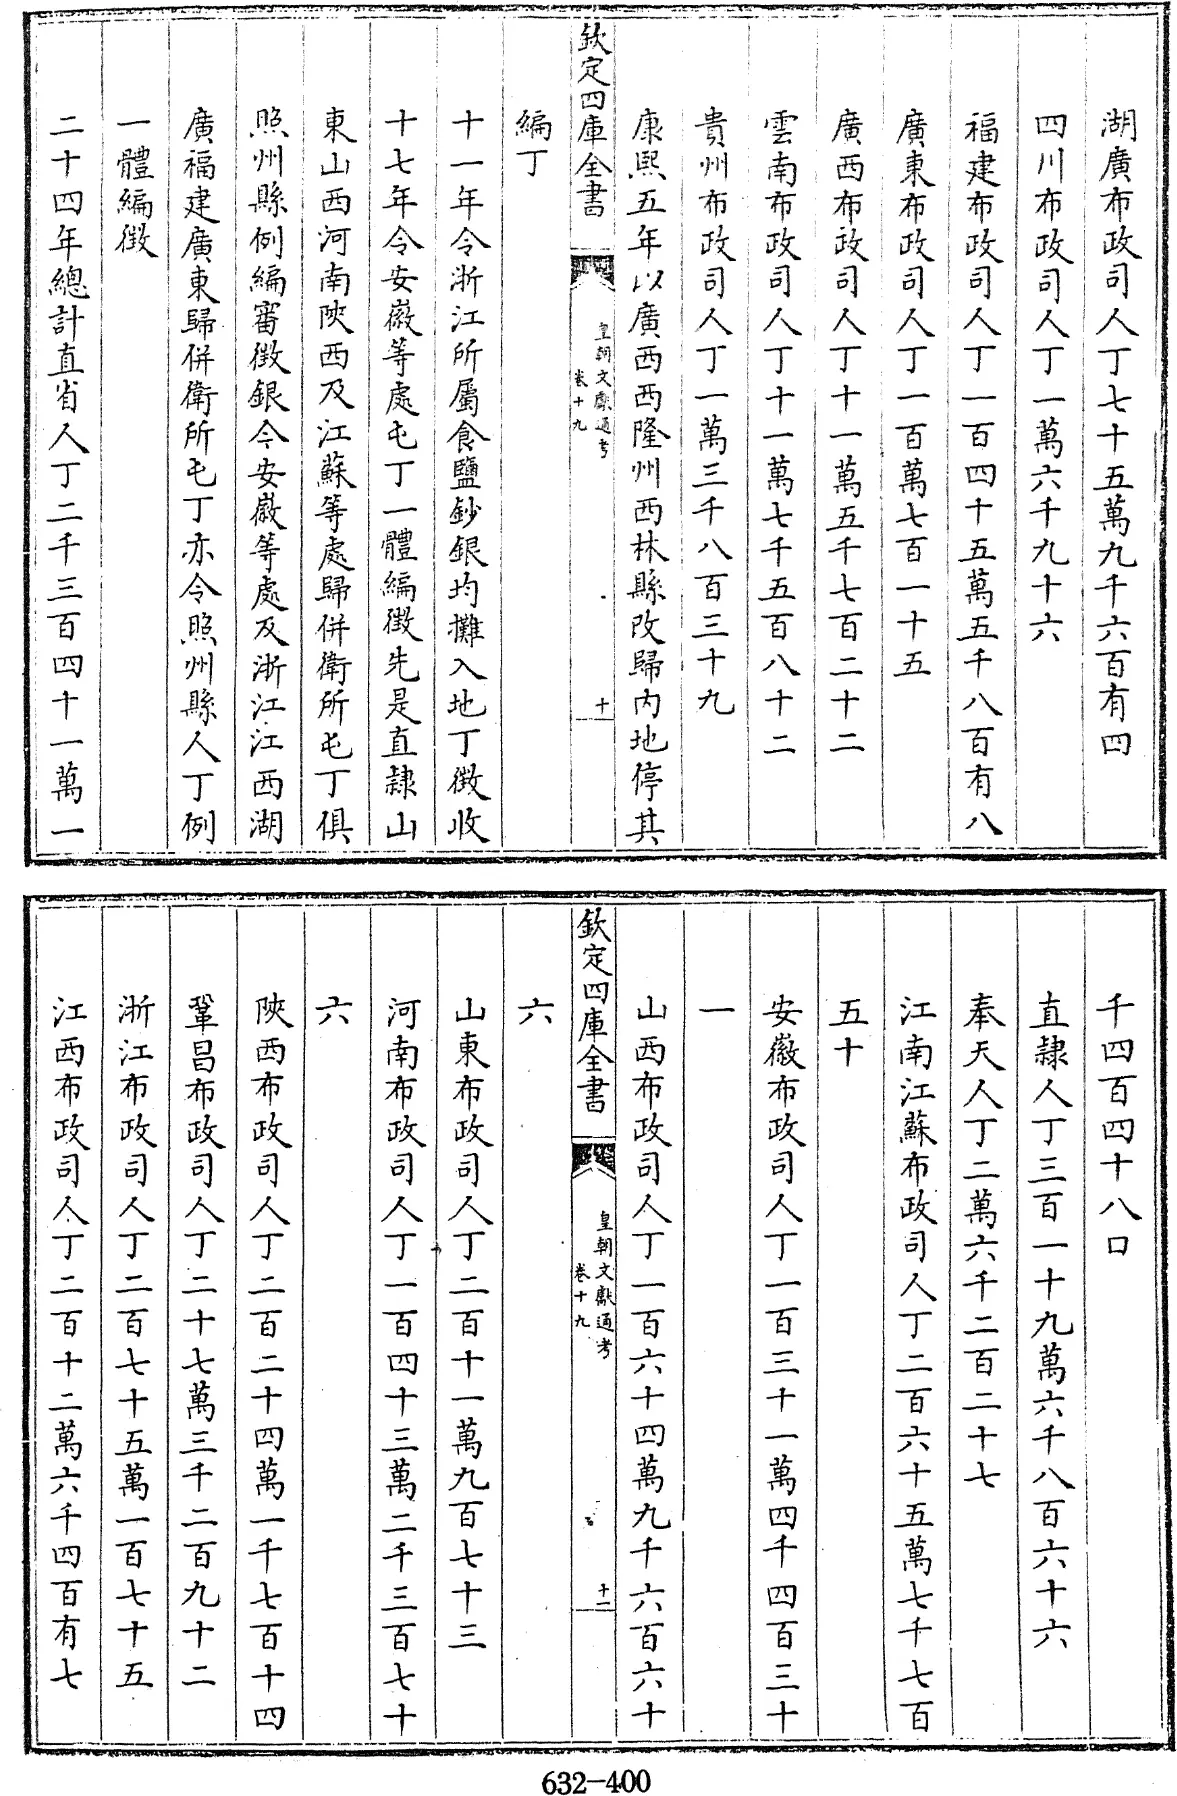 湖廣布政司人丁七十五萬九千六百有四
四川布政司人丁一萬六千九十六
福建布政司人丁一百四十五萬五千八百有八
廣東布政司人丁一百萬七百一十五
廣西布政司人丁十一萬五千七百二十二
雲南布政司人丁十一萬七千五百八十二
貴州布政司人丁一萬三千八百三十九
康熙五年以廣西西隆州西林縣改歸内地停其
欽定四庫全書
皇朝文獻通考
卷十九
十
編丁
十一年令浙江所屬食鹽鈔銀均攤入地丁徵收
十七年令安徽等處屯丁一體編徵先是直隸山
東山西河南陜西及江蘇等處歸併衛所屯丁俱
照州縣例編審徵銀今安徽等處及浙江江西湖
廣福建廣東歸併衛所屯丁亦令照州縣人丁例
一體編徵
二十四年總計直省人丁二千三百四十一萬一
千四百四十八口
直隸人丁三百一十九萬六千八百六十六
奉天人丁二萬六千二百二十七
江南江蘇布政司人丁二百六十五萬七千七百
五十
安徽布政司人丁一百三十一萬四千四百三十
一
山西布政司人丁一百六十四萬九千六百六十
欽定四庫全書
皇朝文獻通考
卷十九
十一
六
山東布政司人丁二百十一萬九百七十三
河南布政司人丁一百四十三萬二千三百七十
六
陜西布政司人丁二百二十四萬一千七百十四
鞏昌布政司人丁二十七萬三千二百九十二
浙江布政司人丁二百七十五萬一百七十五
江西布政司人丁二百十二萬六千四百有七
632-400